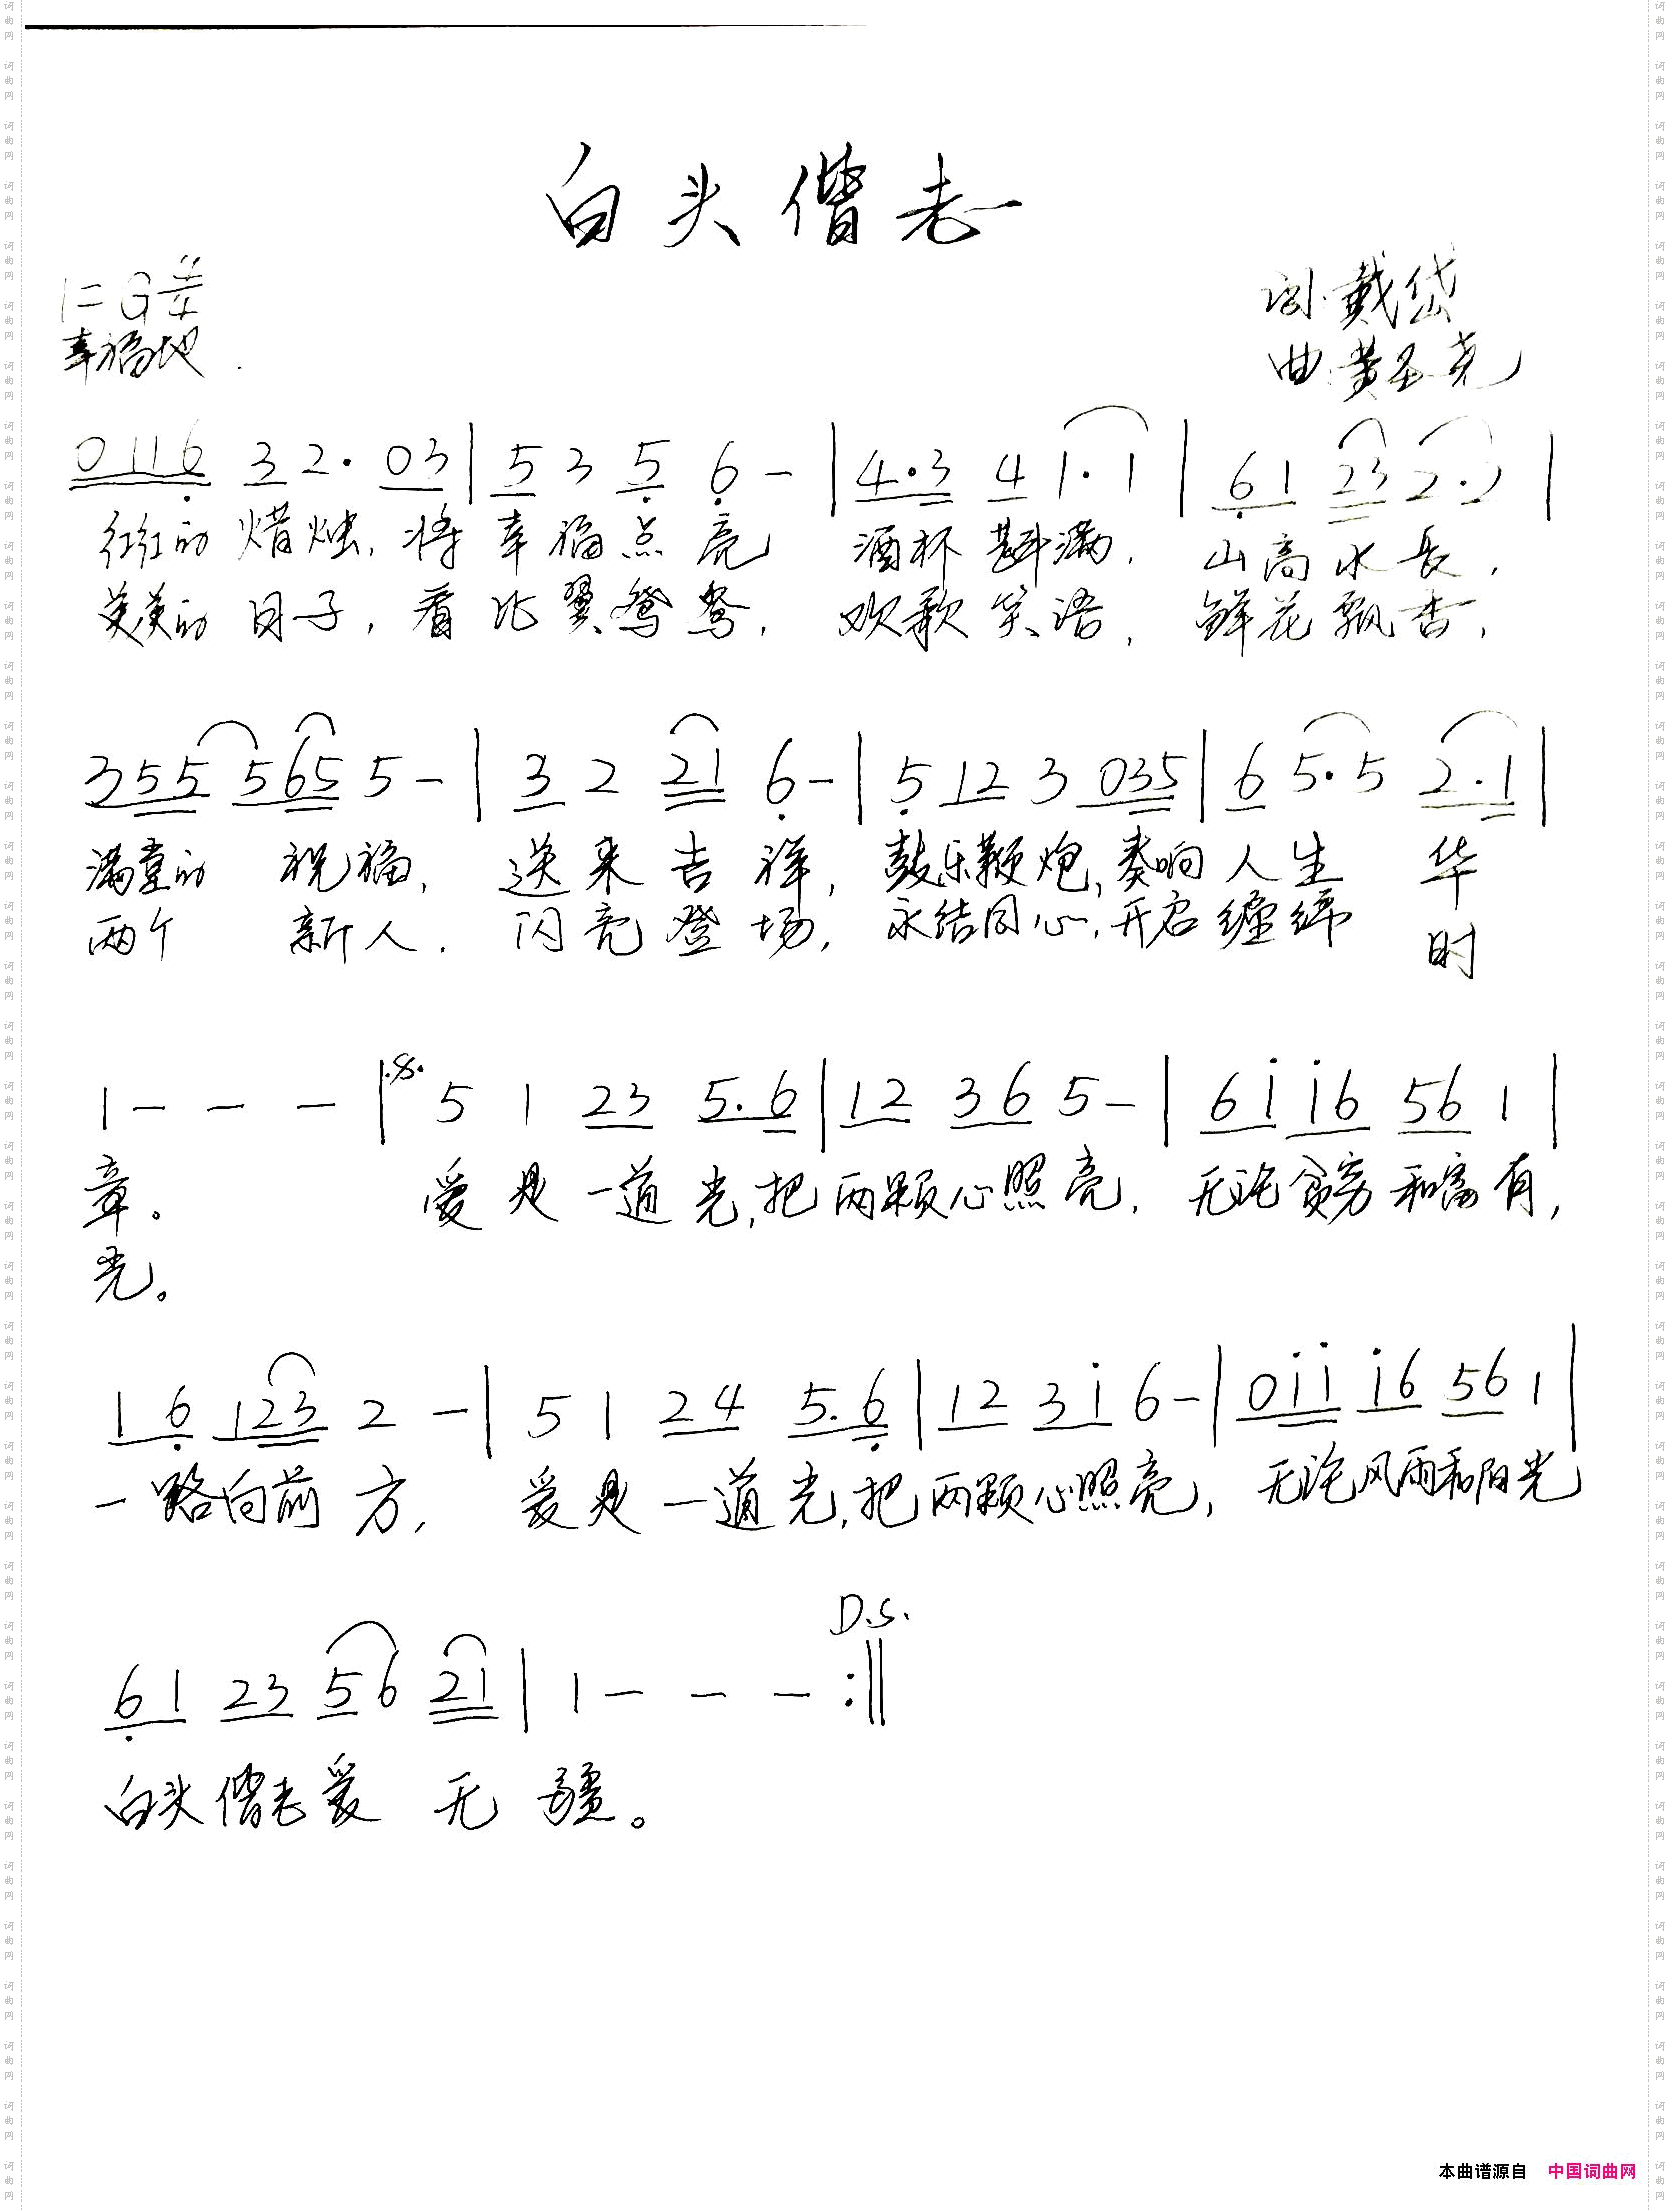 白头偕老
1=G 4/4
词:戴岱
幸福地
曲:黄圣尧
0116 32· 03 | 5 3 5 6 - | 4·3 4 1·1 | 61 23 2·2 |
红红的 烛, 将 幸福点亮 酒杯斟满, 山高水长,
美美的 日子, 看 比翼鸳鸯, 欢歌笑语, 鲜花飘香,
355 565 5 - | 3 2 21 6 - | 5 12 3 035 | 6 5·5 2·1 |
满堂的 祝福, 送来吉祥, 鼓乐鞭炮, 奏响人生 华
两个 新人, 闪亮登场, 永结同心, 开启缠绵 时
1 - - - | 5 1 23 5·6 | 12 36 5 - | 61 16 56 1 |
章。 爱是一道光, 把两颗心照亮, 无论贫穷和富有,
光。
16 123 2 - | 5 1 24 5·6 | 12 31 6 - | 011 16 56 1 |
一路向前方, 爱是一道光, 把两颗心照亮, 无论风雨和阳光
D.S.
61 23 56 21 | 1 - - - :‖
白头偕老爱 无 疆。
本曲谱源自 中国词曲网